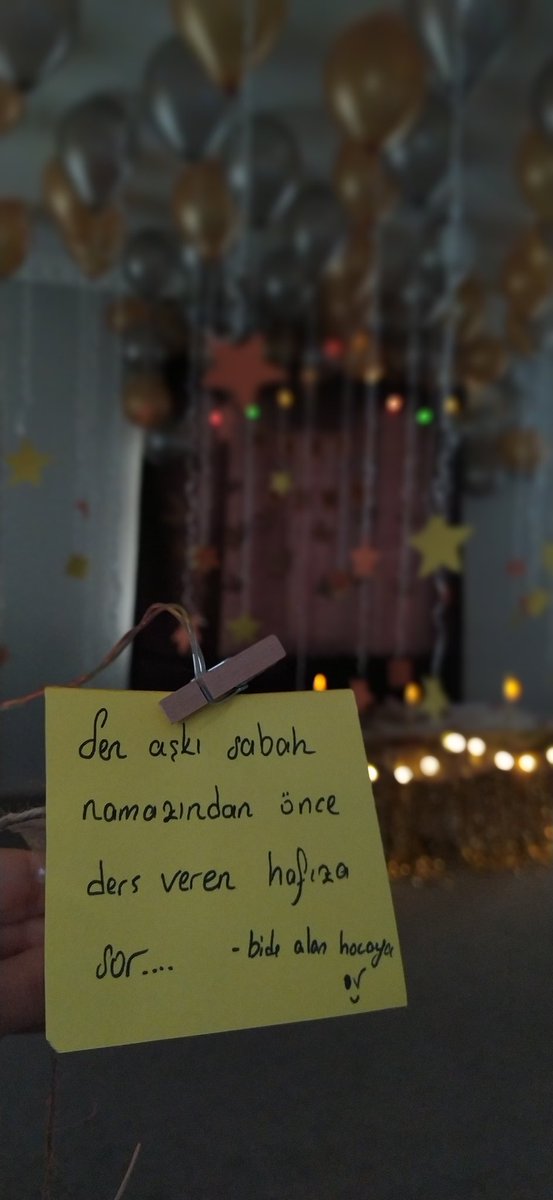 Sen aşkı sabah
namazından önce
ders veren hafıza
sor.... - bide alan hocaya